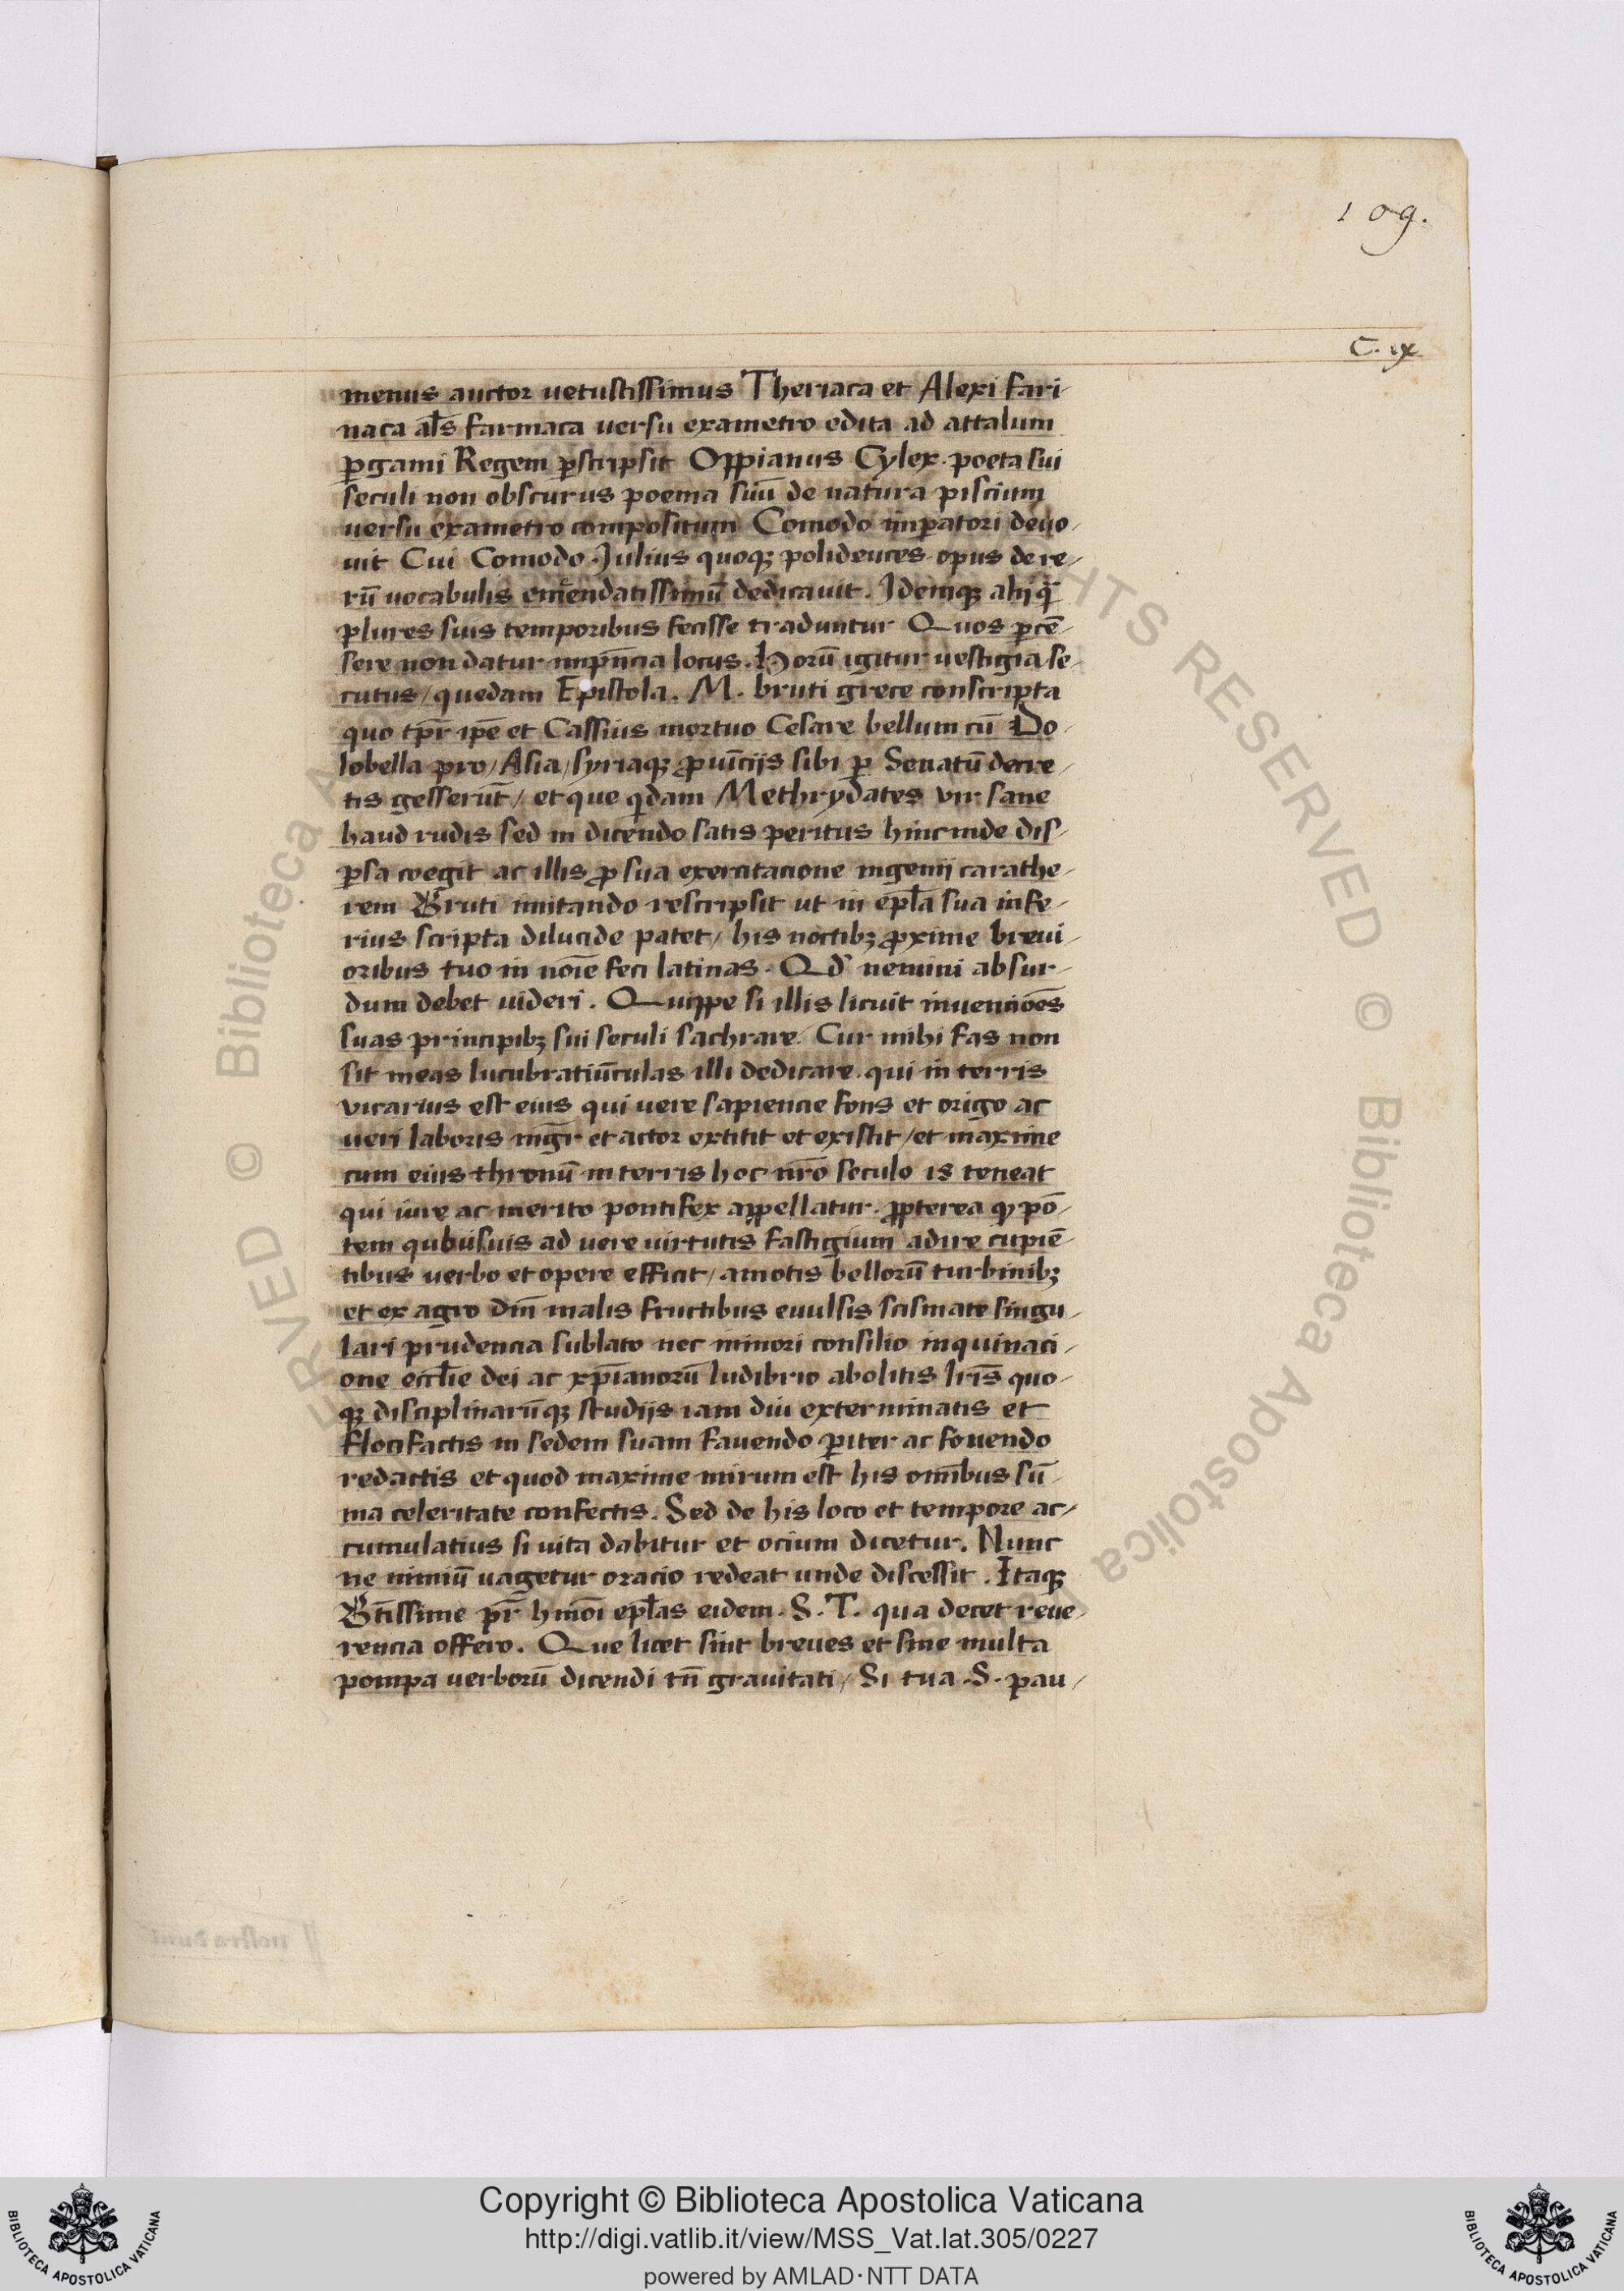 109.
C. ix
menus auctor uetustissimus Theriaca et Alexi fari-
naca al̃s farmaca versu exametro edita ad attalum
ꝑgami Regem ꝑscripsit Oppianus Cylex. poeta sui
seculi non obscurus poema suū de natura piscium
uersu exametro compositum Comodo imꝑatori deuo-
uit Cui Comodo. Julius quoqꝫ polideuces opus de re-
rū uocabulis emendatissimū dedicauit. Idemqꝫ alij q̃
plures suis temporibus fecisse traduntur Quos ꝑcē-
sere non datur impñcia locus. Horū igitur uestigia se-
cutus / quedam Epistola. M. bruti grece conscripta
quo tpr̃ ip̃e et Cassius mortuo Cesare bellum cū Do-
lobella pro / Asia / syriaqꝫ ꝓuīcijs sibi ꝑ Senatū decre-
tis gesserūt / et que qdam Methrydates vir sane
haud rudis sed in dicendo satis peritus hinc inde dis-
ꝑsa coegit ac illis ꝓ sua exercitacione ingenij carathe-
rem Bruti imitando rescripsit ut in ep̃la sua infe-
rius scripta dilucide patet / his noctibꝫ ꝓxime breui-
oribus tuo in noīe feci latinas. Qd̃ nemini absur-
dum debet uideri. Quippe si illis licuit inuencioēs
suas principibꝫ sui seculi sachrare. Cur mihi fas non
sit meas lucubratiūculas illi dedicare. qui in terris
vicarius est eius qui uere sapiencie fons et origo ac
ueri laboris mg̃r et actor extitit et existit / et maxime
cum eius thronū in terris hoc nr̃o seculo is teneat
qui iure ac merito pontifex appellatur. ꝓpterea ꝙ pō-
tem qubusuis ad vere uirtutis fastigium adire cupiē-
tibus verbo et opere efficit / amotis bellorū turbinibꝫ
et ex agro dn̄i malis fructibus euulsis scismate singu-
lari prudencia sublato nec minori consilio inquinaci-
one eccl̃ie dei ac xp̃ianorū ludibrio abolitis lr̃is quo-
qꝫ disciplinarūqꝫ studijs iam diu exterminatis et
flocifactis in sedem suam fauendo ꝑiter ac fouendo
redactis et quod maxime mirum est his om̃ibus sū-
ma celeritate confectis. Sed de his loco et tempore ac-
cumulatius si uita dabitur et ocium dicetur. Nunc
ne nimiū uagetur oracio redeat unde discessit. Itaqꝫ
Bt̃issime pr̃ hmōi ep̃las eidem. S. T. qua decet reue-
rencia offero. Que licet sint breues et sine multa
pompa uerborū dicendi tn̄ grauitati / Si tua .S. pau-
Copyright © Biblioteca Apostolica Vaticana
http://digi.vatlib.it/view/MSS_Vat.lat.305/0227
powered by AMLAD·NTT DATA